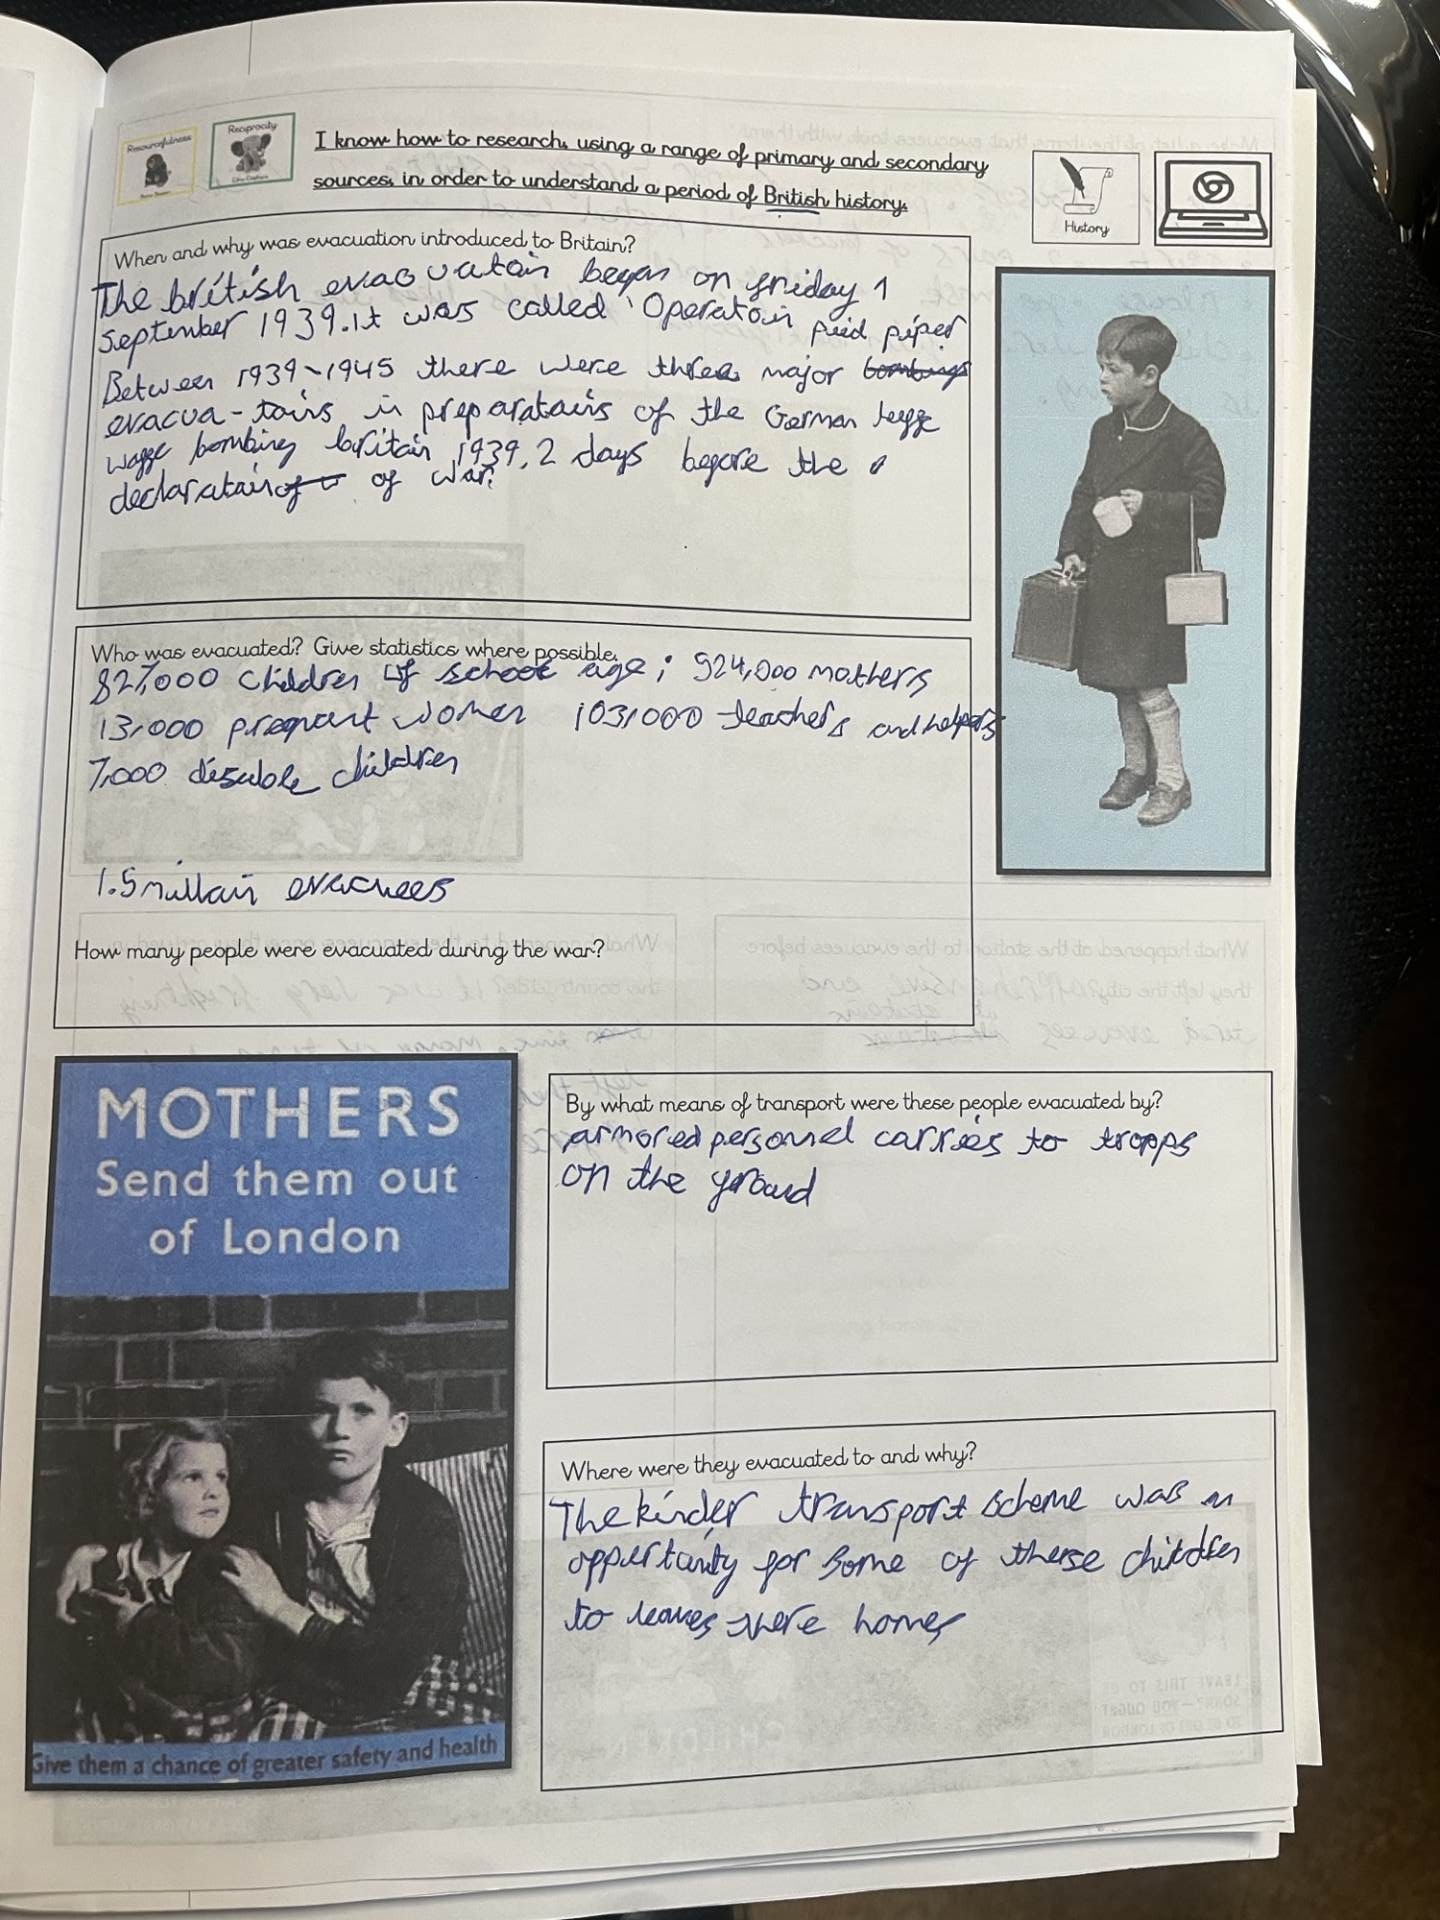 Resourcefulness
Reciprocity
I know how to research, using a range of primary and secondary
sources, in order to understand a period of British history.
History
When and why was evacuation introduced to Britain?
The british evacuatain began on friday 1
september 1939. It was called 'Operatoin pied piper
Between 1939-1945 there were three major bombings
evacua-tains in preparatains of the German
bombing britain 1939, 2 days before the
declaratain of of war.
Who was evacuated? Give statistics where possible.
827,000 children of school age; 524,000 mothers
13,000 pregnant women 103,000 teachers and helpers
7,000 disable children
1.5 millain evacuees
How many people were evacuated during the war?
MOTHERS
Send them out
of London
Give them a chance of greater safety and health
By what means of transport were these people evacuated by?
armored personnel carries to tropps
on the ground
Where were they evacuated to and why?
The kinder transport scheme was an
oppurtunity for some of therse children
to leaves there homes